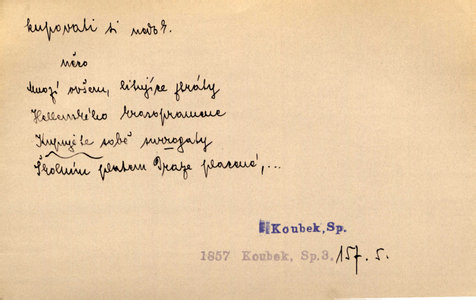 kupovati si
něco
Mnozí ovšem,
Hellenského krasopramene
Kupujíce sobě surogaty
Školním platem Draze placené,...
Koubek, Sp.
1857 Koubek, Sp.3. 157. 5.